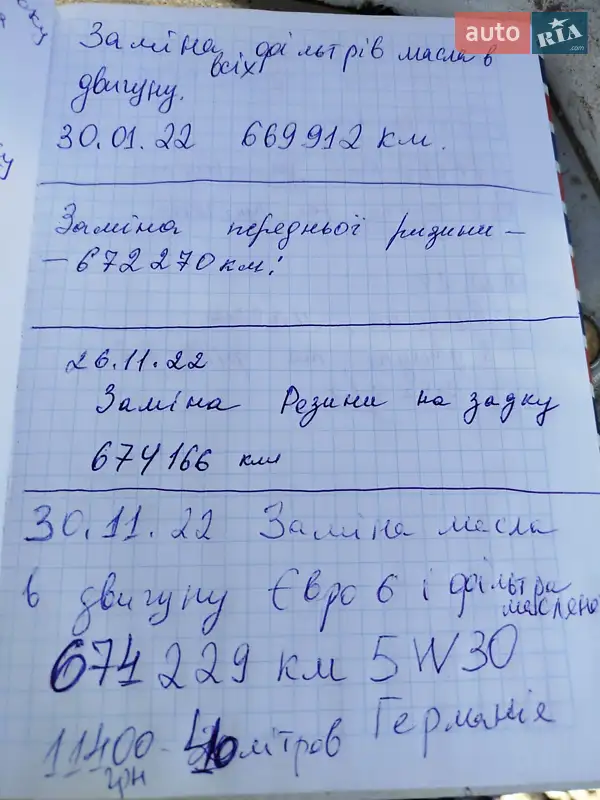 auto RIA .com
Заміна всіх фільтрів масла в
двигуну.
30.01.22 669912 км.
Заміна передньої ризини –
– 672270 км!
26.11.22
Заміна Резини на задку
674166 км
30.11.22 Заміна масла
в двигуну Євро 6 і фільтра
масляно
674229 км 5W30
11400 грн - 40 літров Германія